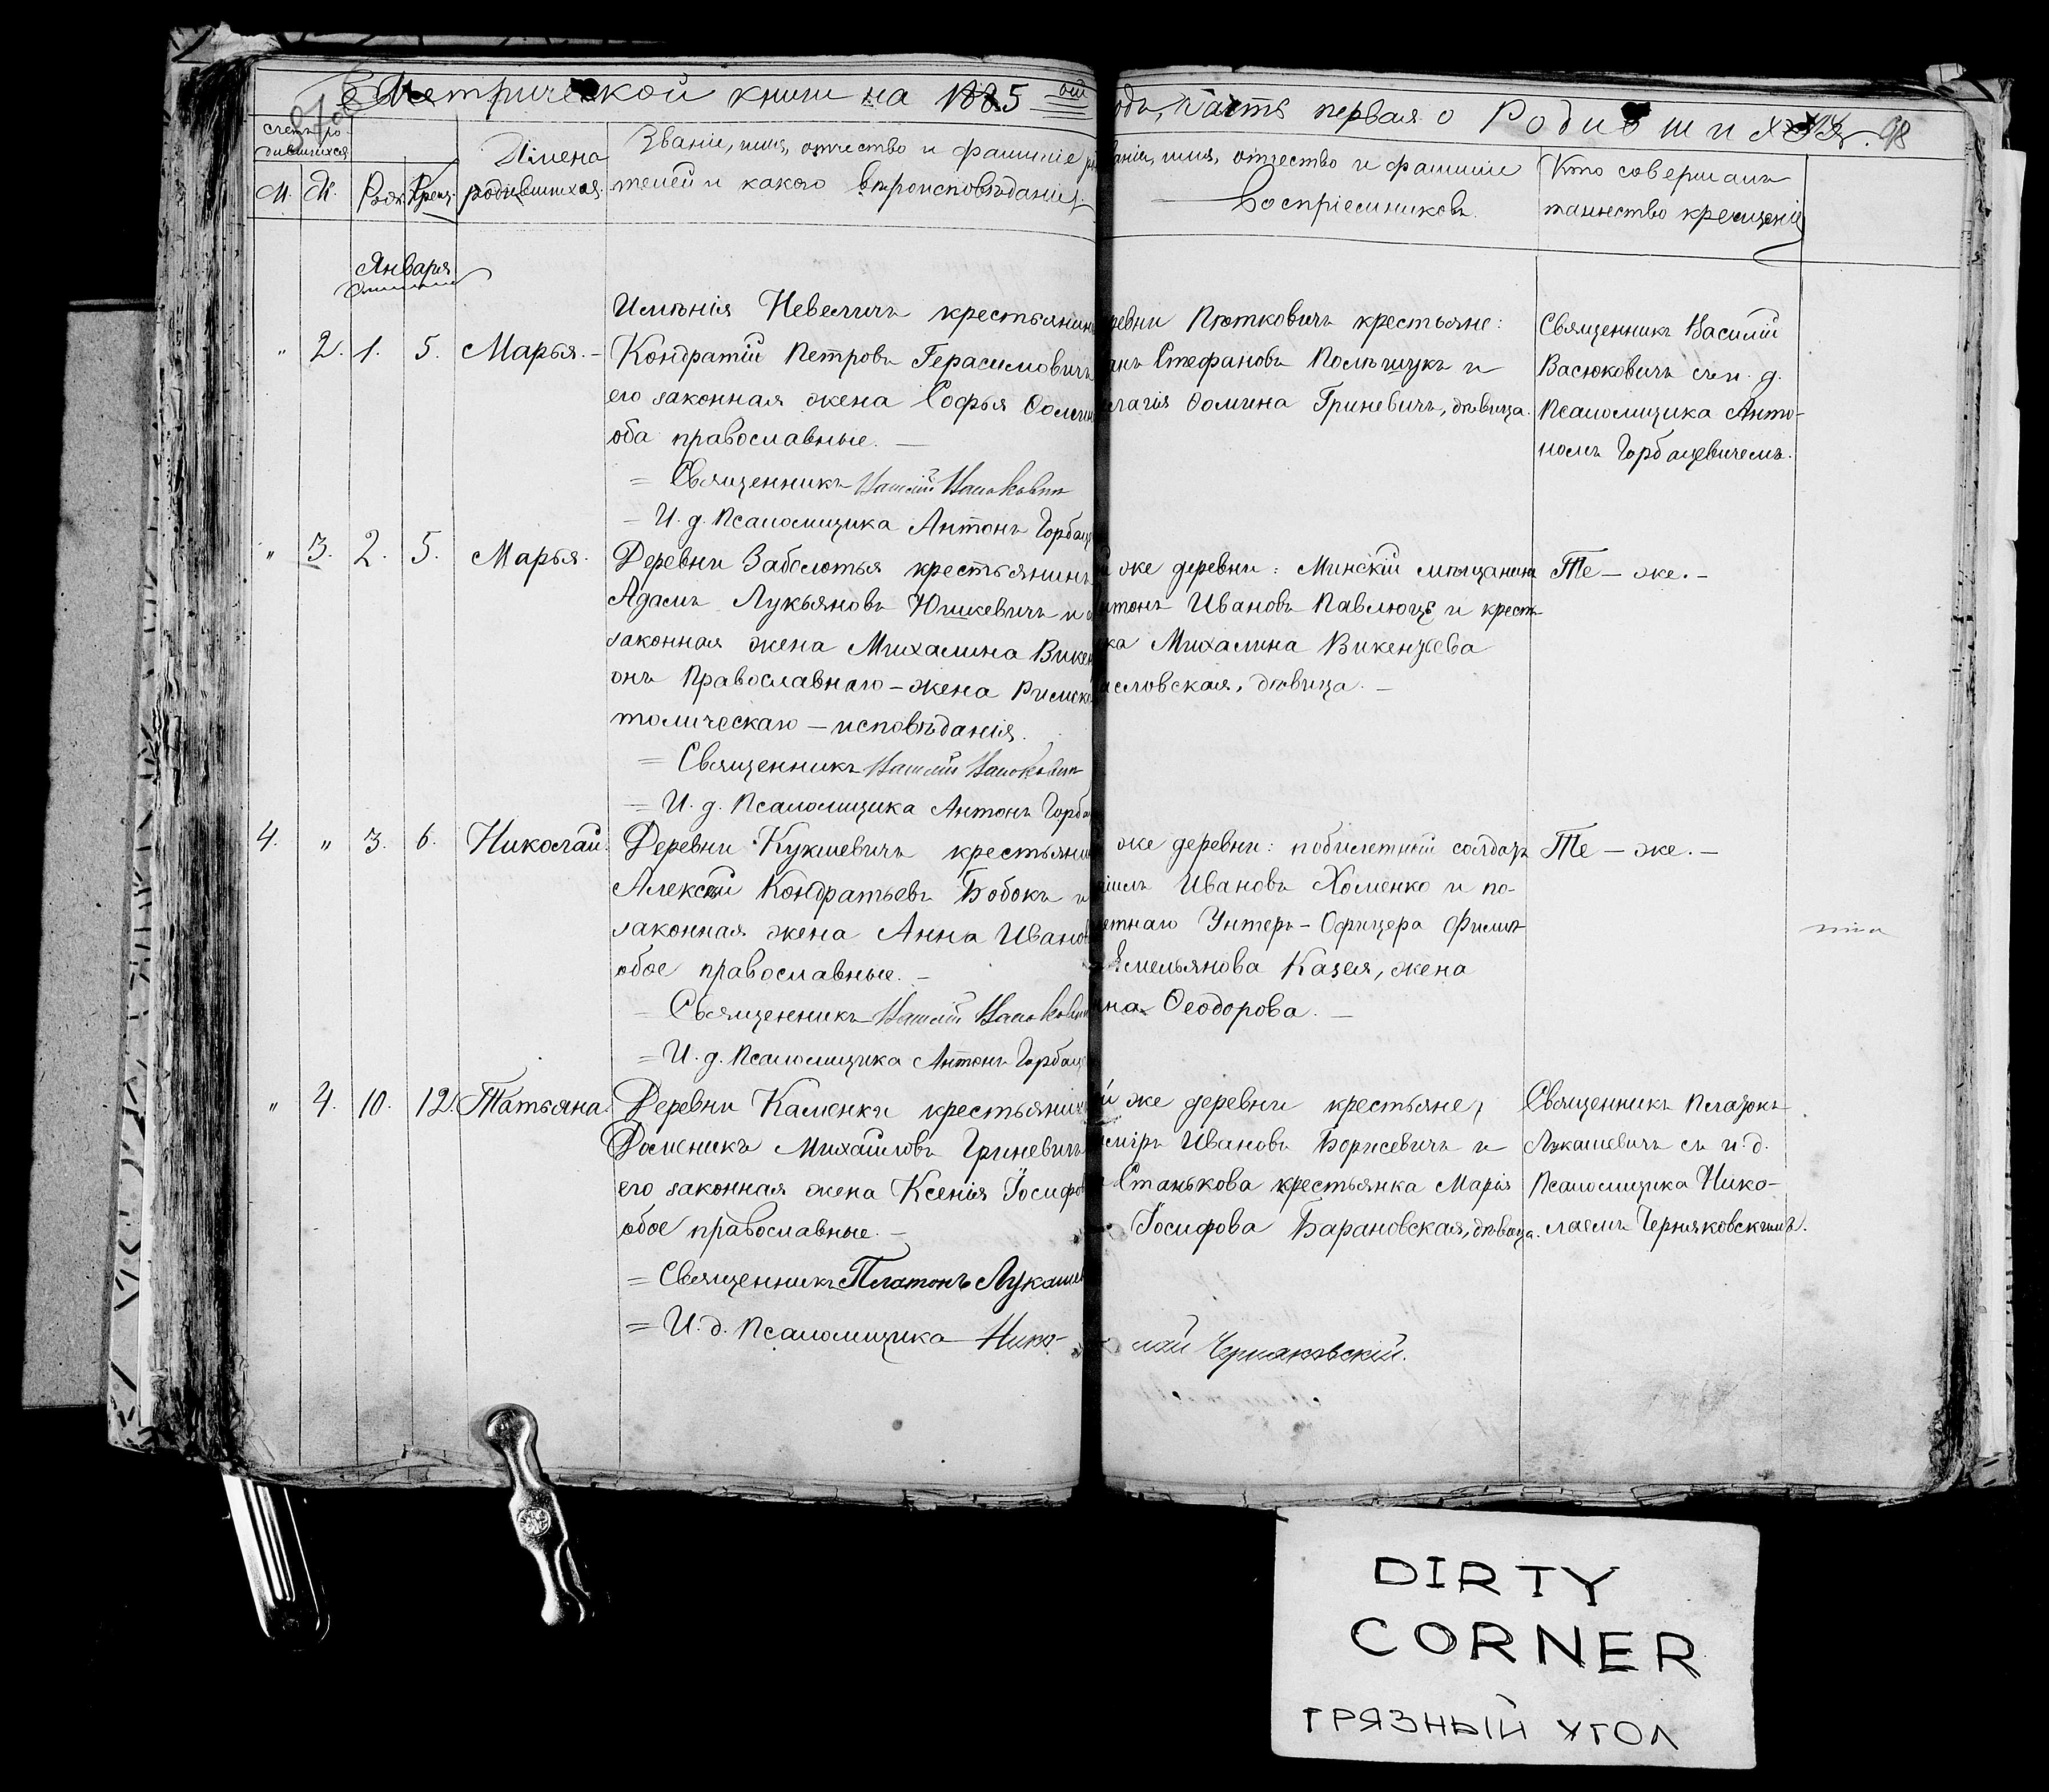 Метрической книги на 1885 ый
одъ, часть первая о Родившихся. 98
Счетъ ро
дившихся
М. Ж. Рож. Крещ.
Имена
родившихся.
Званіе, имя, отчество и фамиліе ро
телей и какого вѣроисповѣданія.
ваніе, имя, отчество и фамиліи
Воспріемниковъ.
Кто совершалъ
таинство крещенія
Января
" 2. 1. 5. Марья. –
Имѣнія Невеличъ крестьянин
Кондратій Петровъ Герасимовичъ
его законная жена Софья Ѳомин
оба православные. —
= Священникъ Василій Васюкович
– И. д. Псаломщика Антонъ Горбаце
ревни Пютковичъ крестьяне:
анъ Стефановъ Полѣщукъ и
елагія Ѳомина Гриневичъ, дѣвица.
Священникъ Василій
Васюковичъ съ и. д.
Псаломщика Анто-
номъ Горбацевичемъ.
" 3. 2. 5. Марья.
Деревни Заболотья крестьянинъ
Адамъ Лукьяновъ Юшкевичъ и
законная жена Михалина Викен
онъ Православнаго – жена Римско
толическаго – исповѣданія.
= Священникъ Василій Васюкович
= И. д. Псаломщика Антонъ Горба
й же деревни: Минскій мѣщанинъ
нтонъ Ивановъ Павлюць и крест
ка Михалина Викенцева
словская, дѣвица. –
Тѣ – же. –
4. " 3. 6. Николай.
Деревни Кукшевичъ крестьяни
Алексѣй Кондратьевъ Бобокъ и
законная жена Анна Иванов
обое православные. –
= Священникъ Василій Васюкович
= И. д. Псаломщика Антонъ Горбаце
же деревни: побилетный солдатъ
илъ Ивановъ Хоменко и по-
етнаго Унтеръ-Офицера Филип
Емельянова Казея, жена
на Ѳеодорова. –
Тѣ – же. –
" 4. 10. 12. Татьяна.
Деревни Каменки крестьянин
Доменикъ Михайловъ Гриневичъ
его законная жена Ксенія Іосифов
обое православные. –
= Священникъ Платонъ Лукашев
= И. д. Псаломщика Нико-
й же деревни крестьяне,
иміръ Ивановъ Борисевичъ и
Станькова крестьянка Марія
Іосифова Барановская, дѣвица.
лай Черняковскій.
Священникъ Платонъ
Лукашевичъ съ и. д.
Псаломщика Нико-
лаемъ Черняковскимъ.
DIRTY
CORNER
ГРЯЗНЫЙ УГОЛ